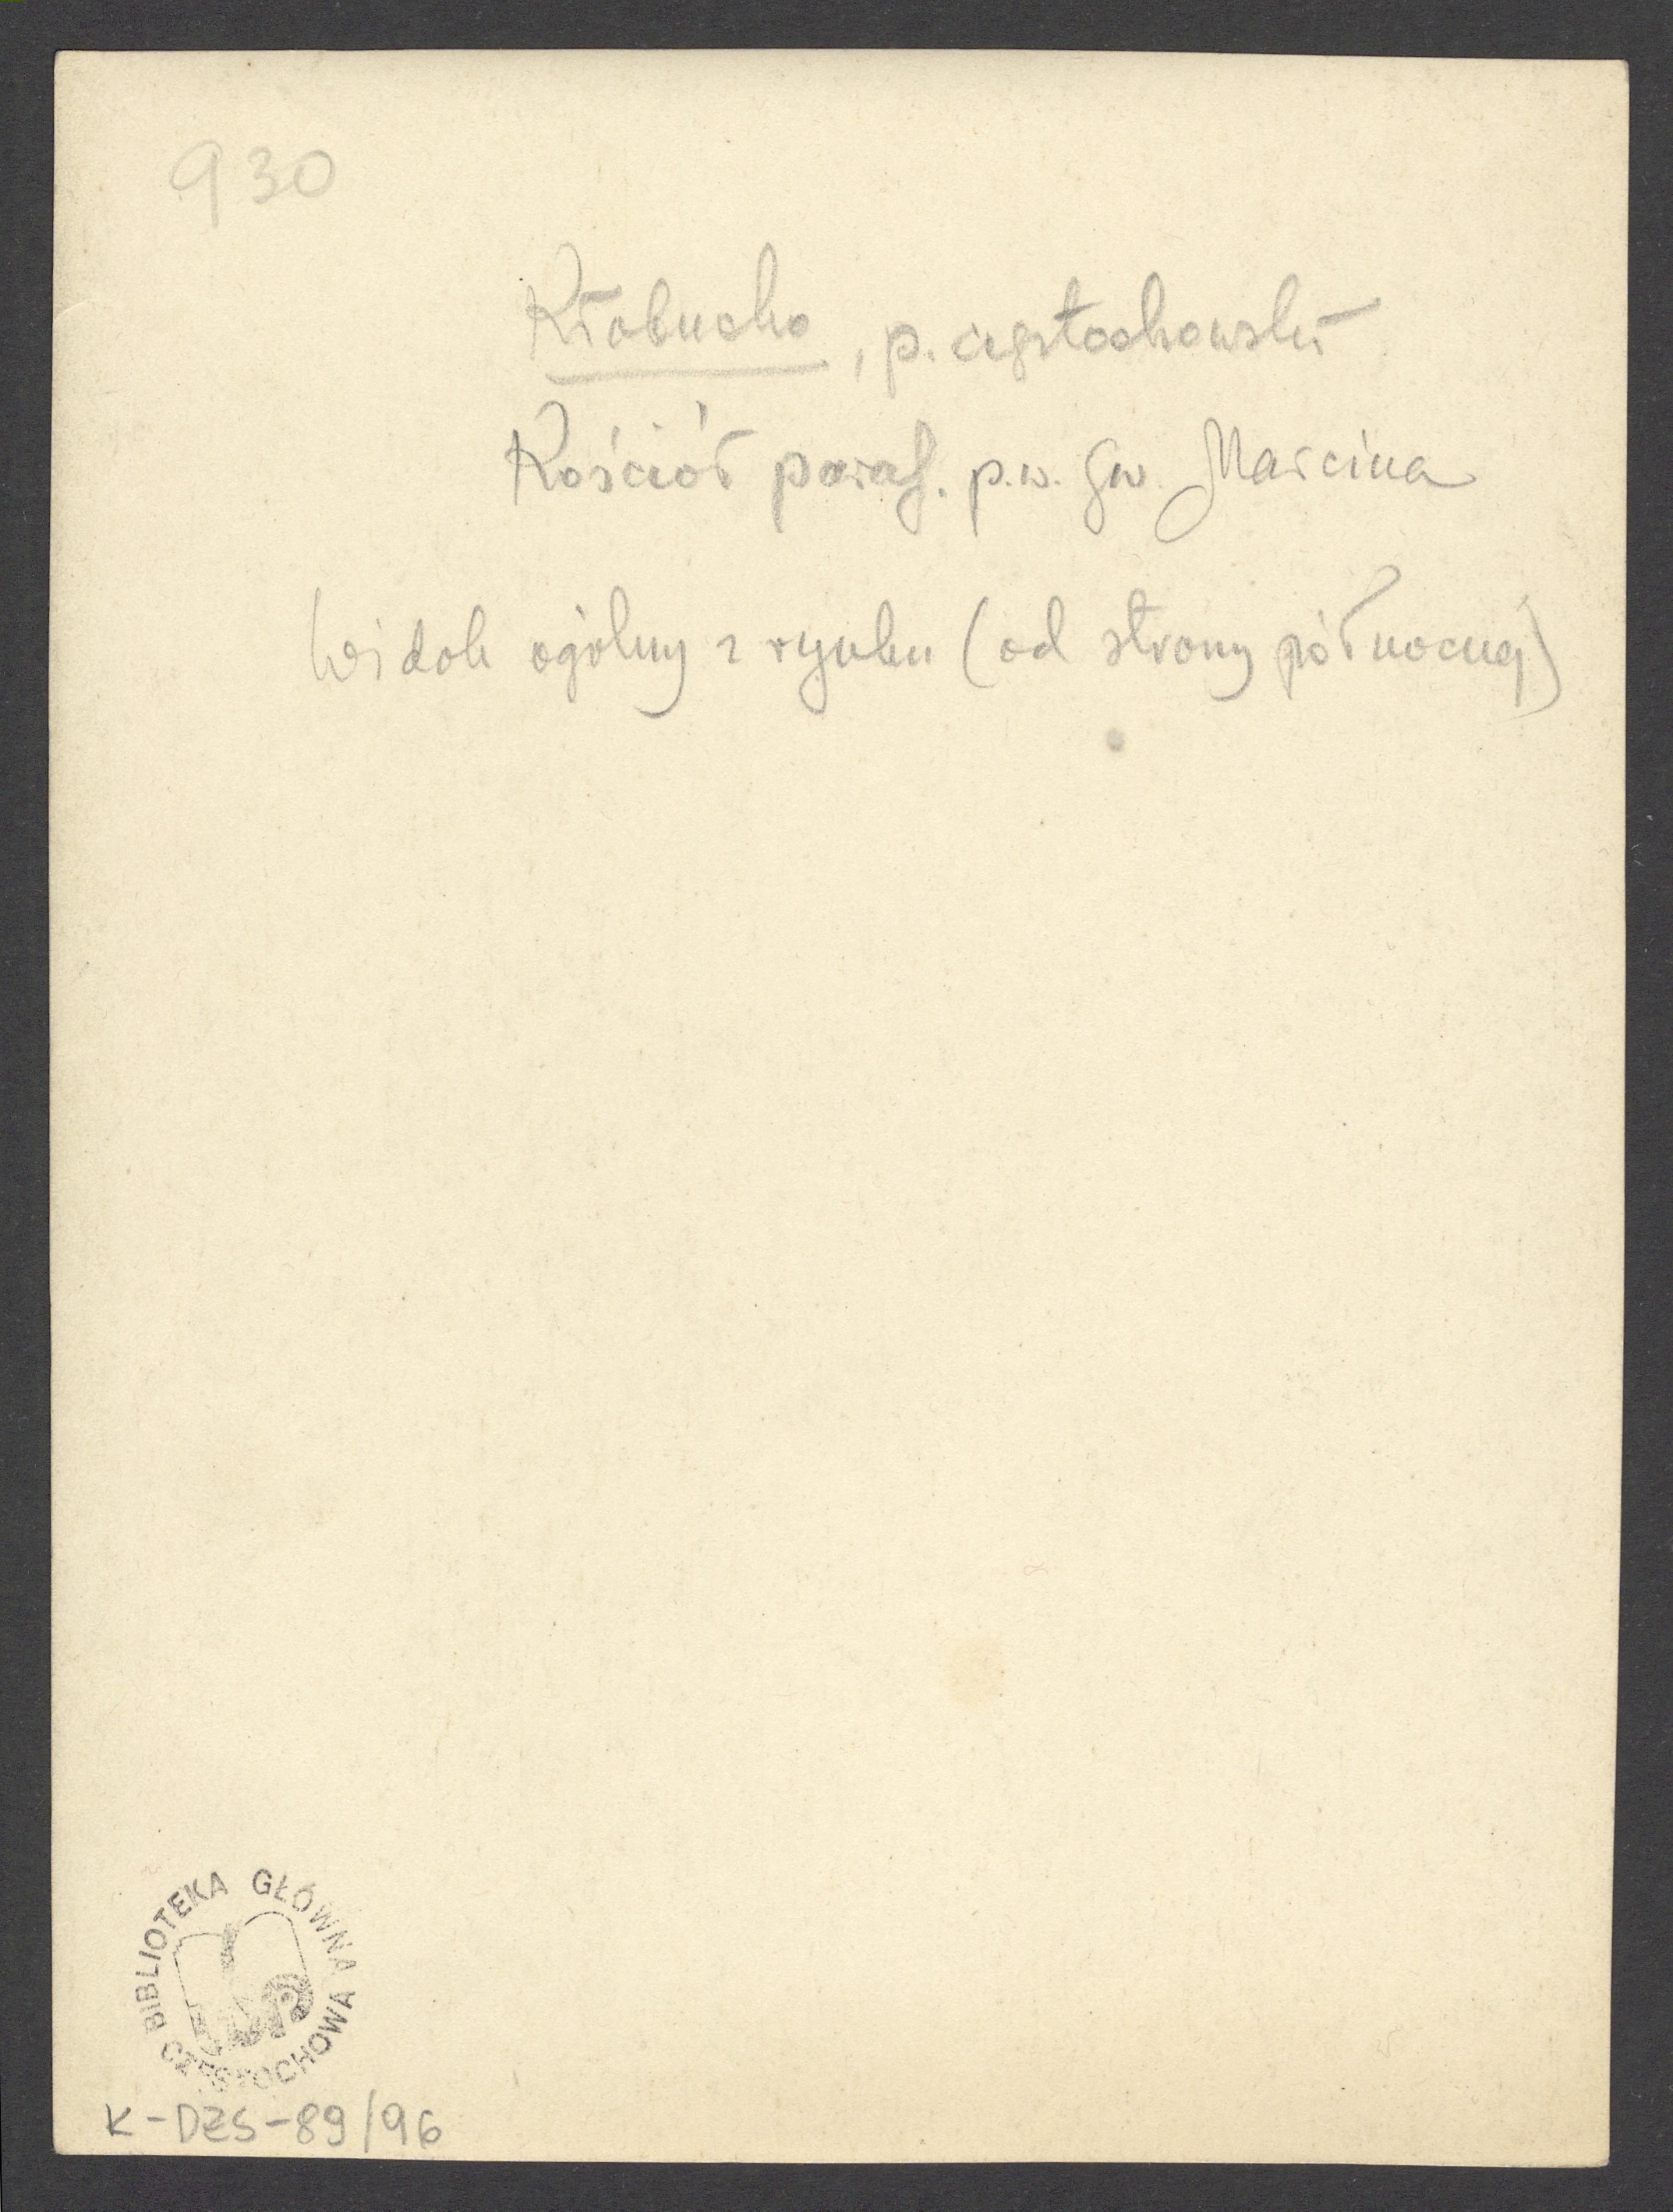 930
Kłobucko, p. częstochowski
Kościół paraf. p.w. Św. Marcina
Widok ogólny z rynku (od strony północnej)
BIBLIOTEKA GŁÓWNA
CZĘSTOCHOWA
K-DZS-89/96